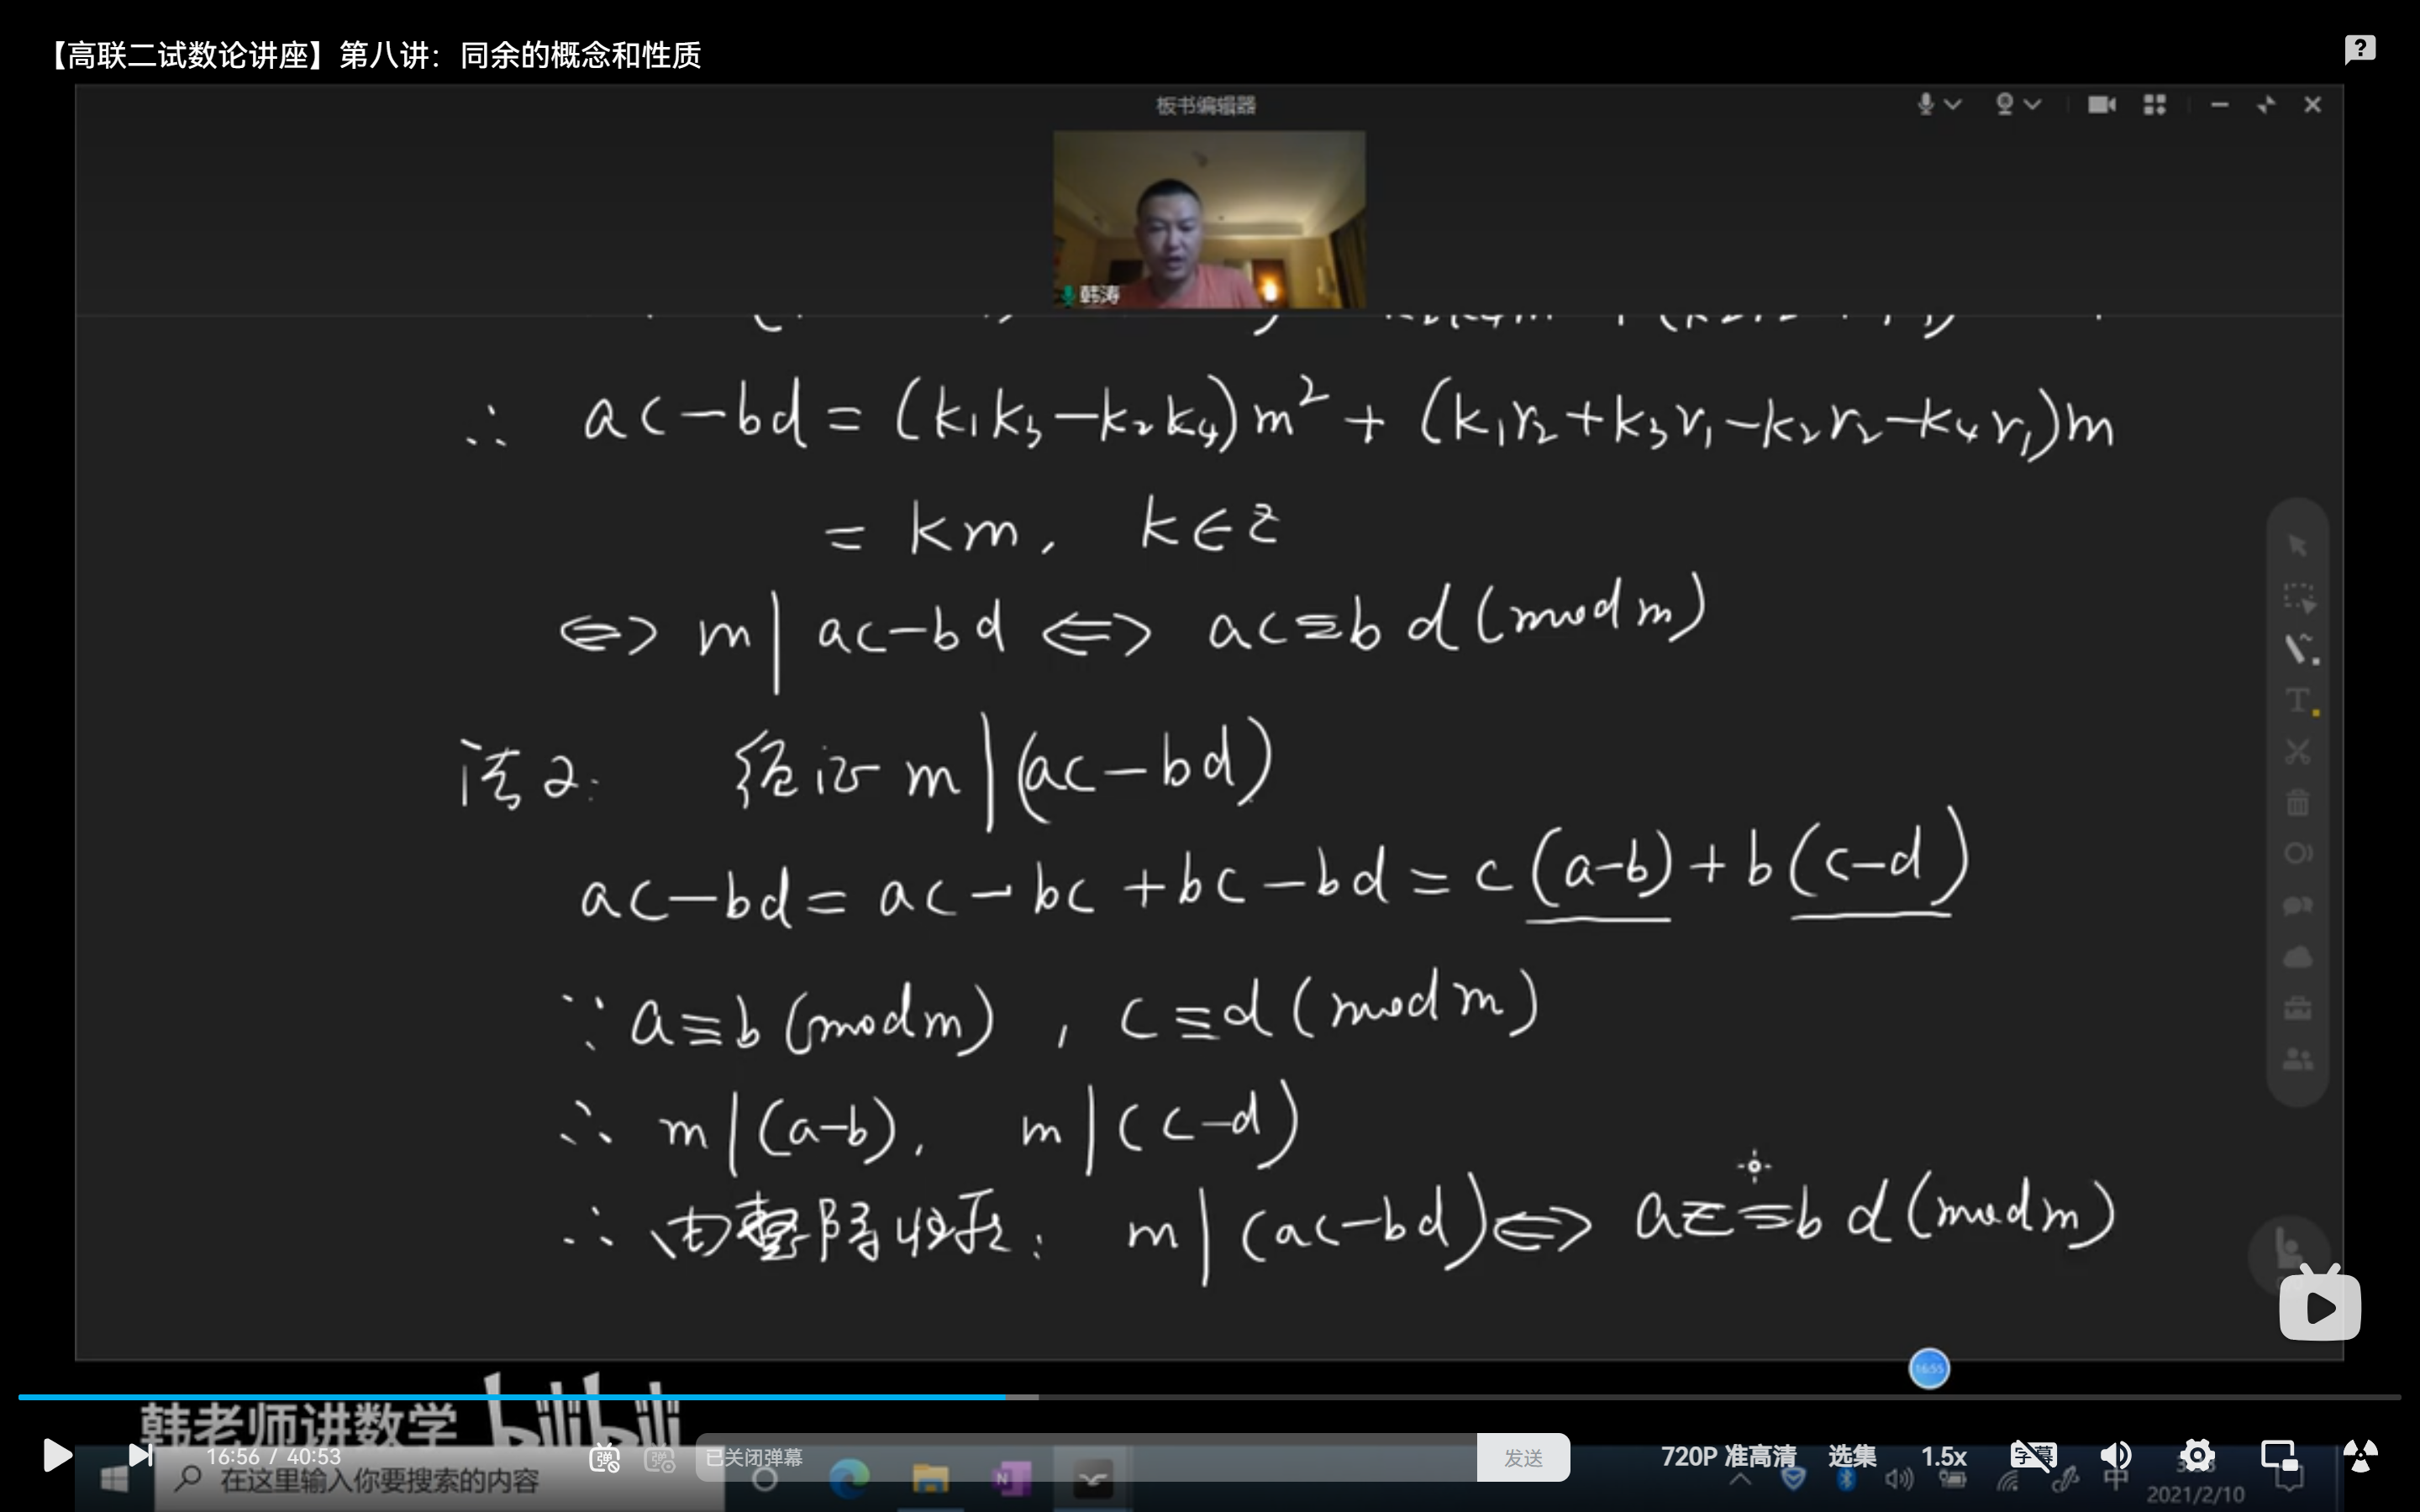 【高联二试数论讲座】第八讲：同余的概念和性质
板书编辑器
韩涛
∴ ac-bd=(k₁k₃-k₂k₄)m²+(k₁r₂+k₃r₁-k₂r₂-k₄r₁)m
= km, k∈z
⇔ m|ac-bd ⇔ ac≡bd(mod m)
法2: 往证 m|(ac-bd)
ac-bd=ac-bc+bc-bd=c(a-b)+b(c-d)
∵ a≡b(mod m), c≡d(mod m)
∴ m|(a-b), m|(c-d)
∴ 由整除性质: m|(ac-bd)⇔ ac≡bd(mod m)
16:55
韩老师讲数学 bilibili
16:56 / 40:53
弹
弹
已关闭弹幕
发送
720P 准高清
选集
1.5x
字幕
在这里输入你要搜索的内容
中
2021/2/10